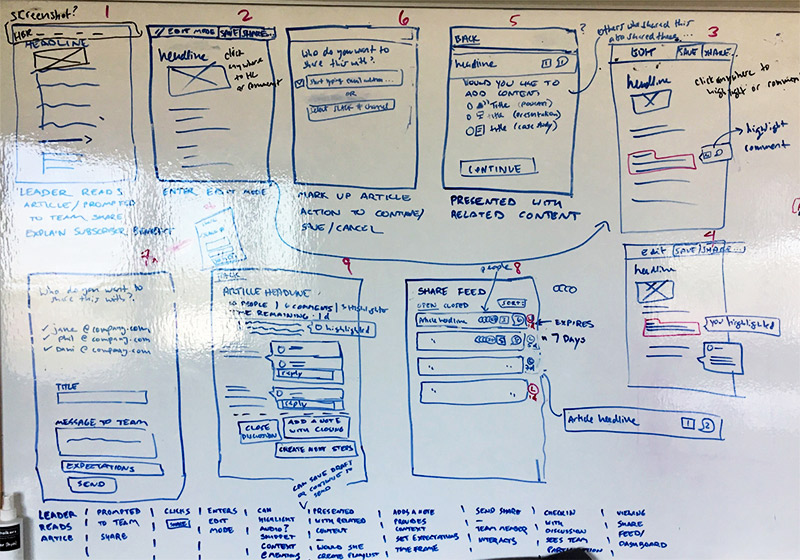 Screenshot?
1
HBR
HEADLINE
LEADER READS
ARTICLE / PROMPTED
TO TEAM SHARE
EXPLAIN SUBSCRIBER BENEFIT
2
EDIT MODE SAVE SHARE...
headline
click
anywhere
to HL
or comment
ENTER EDIT MODE
6
Who do you want to
share this with?
OR
MARK UP ARTICLE
ACTION TO CONTINUE/
SAVE/CANCEL
5
BACK
headline 1 2
WOULD YOU LIKE TO
ADD CONTENT
Title (podcast)
title (presentation)
title (case study)
CONTINUE
PRESENTED WITH
RELATED CONTENT
?
others who shared this
also shared these...
3
EDIT SAVE SHARE...
headline
click anywhere to
highlight or comment
highlight
comment
4
edit SAVE/SHARE...
headline
you highlighted
7A
Who do you want to
share this with?
✓ jane @ company.com
✓ phil @ company.com
✓ dani @ company.com
TITLE
MESSAGE TO TEAM
EXPECTATIONS
SEND
9
BACK
ARTICLE HEADLINE
10 PEOPLE | 6 COMMENTS | 3 Highlighter
TIME REMAINING: 1d
highlighted
reply
reply
CLOSE
DISCUSSION
ADD A NOTE
WITH CLOSING
CREATE NEXT STEPS
CAN SAVE DRAFT
OR CONTINUE TO
SEND
people
8
SHARE FEED
OPEN CLOSED SORT
Article headline
EXPIRES
= 7 DAYS
Article headline 1 2
LEADER
READS
ARTICLE
PROMPTED
TO TEAM
SHARE
CLICKS
SHARE
ENTERS
EDIT
MODE
CAN
HIGHLIGHT
AUDIO?
SNIPPET
CONTEXT
PRESENTED
WITH RELATED
CONTENT
—
WOULD SHE
CREATE PLAYLIST
ADDS A NOTE
PROVIDES
CONTEXT
SET EXPECTATIONS
TIME FRAME
SEND SHARE
—
TEAM MEMBER
INTERACTS
CHECK IN
WITH
DISCUSSION
SEES TEAM
PARTICIPATION
VIEWING
SHARE
FEED/
DASHBOARD